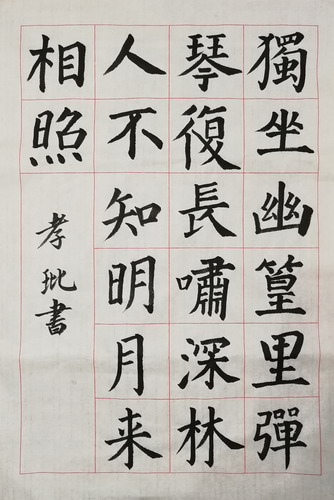 獨坐幽篁里彈
琴復長嘯深林
人不知明月来
相照
孝玭書